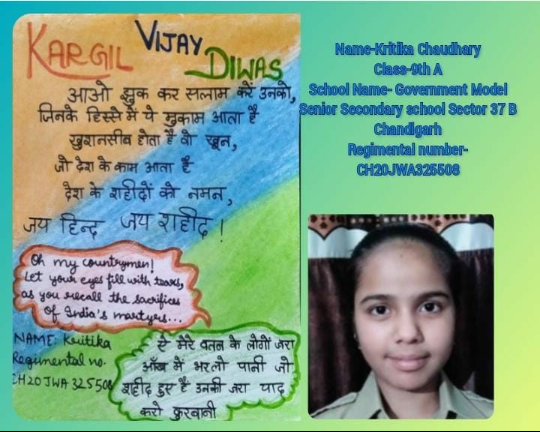 KARGIL VIJAY DIWAS
आओ झुक कर सलाम करें उनको,
जिनके हिस्से में ये मुकाम आता है
खुशनसीब होता है वो खून,
जो देश के काम आता है
देश के शहीदों को नमन,
जय हिन्द जय शहीद !
Oh my countrymen!
Let your eyes fill with tears,
as you recall the sacrifices
of India's martyrs...
NAME: Kritika
Regimental no.
CH20JWA325508
ऐ मेरे वतन के लोगों जरा
आँख में भरलो पानी जो
शहीद हुए है उनकी जरा याद
करो कुरबानी
Name-Kritika Chaudhary
Class-9th A
School Name- Government Model
Senior Secondary school Sector 37 B
Chandigarh
Regimental number-
CH20JWA325508